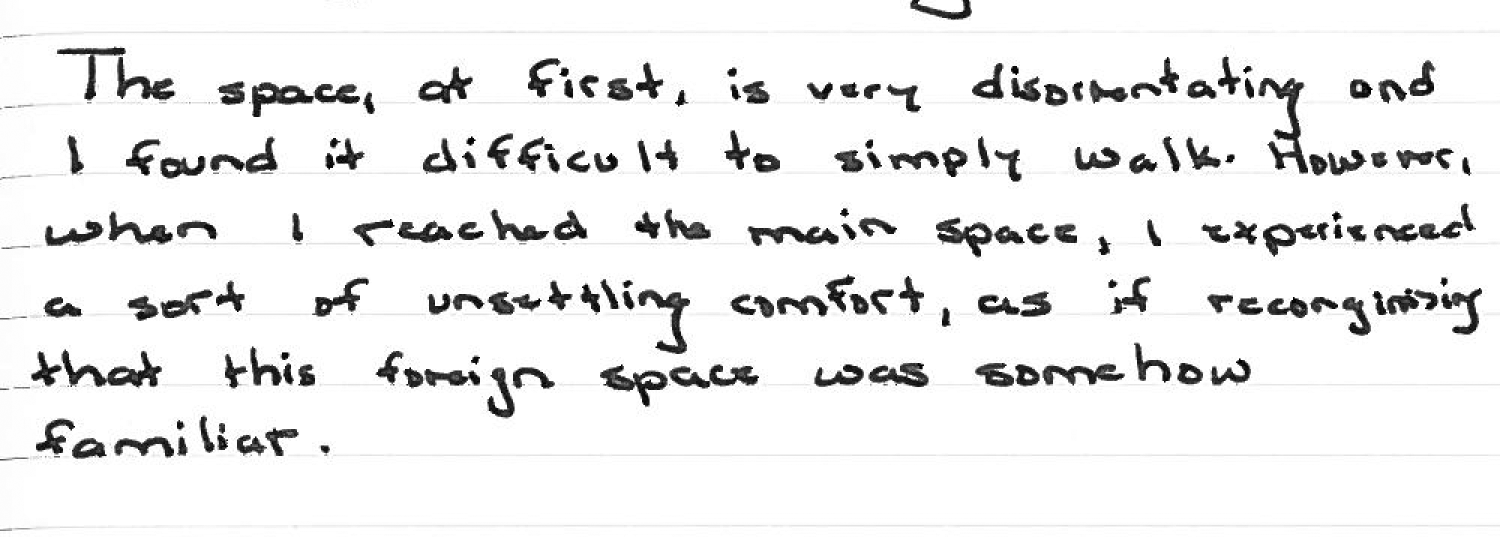 The space, at first, is very disorientating and
I found it difficult to simply walk. However,
when I reached the main space, I experienced
a sort of unsettling comfort, as if reconginising
that this foreign space was somehow
familiar.